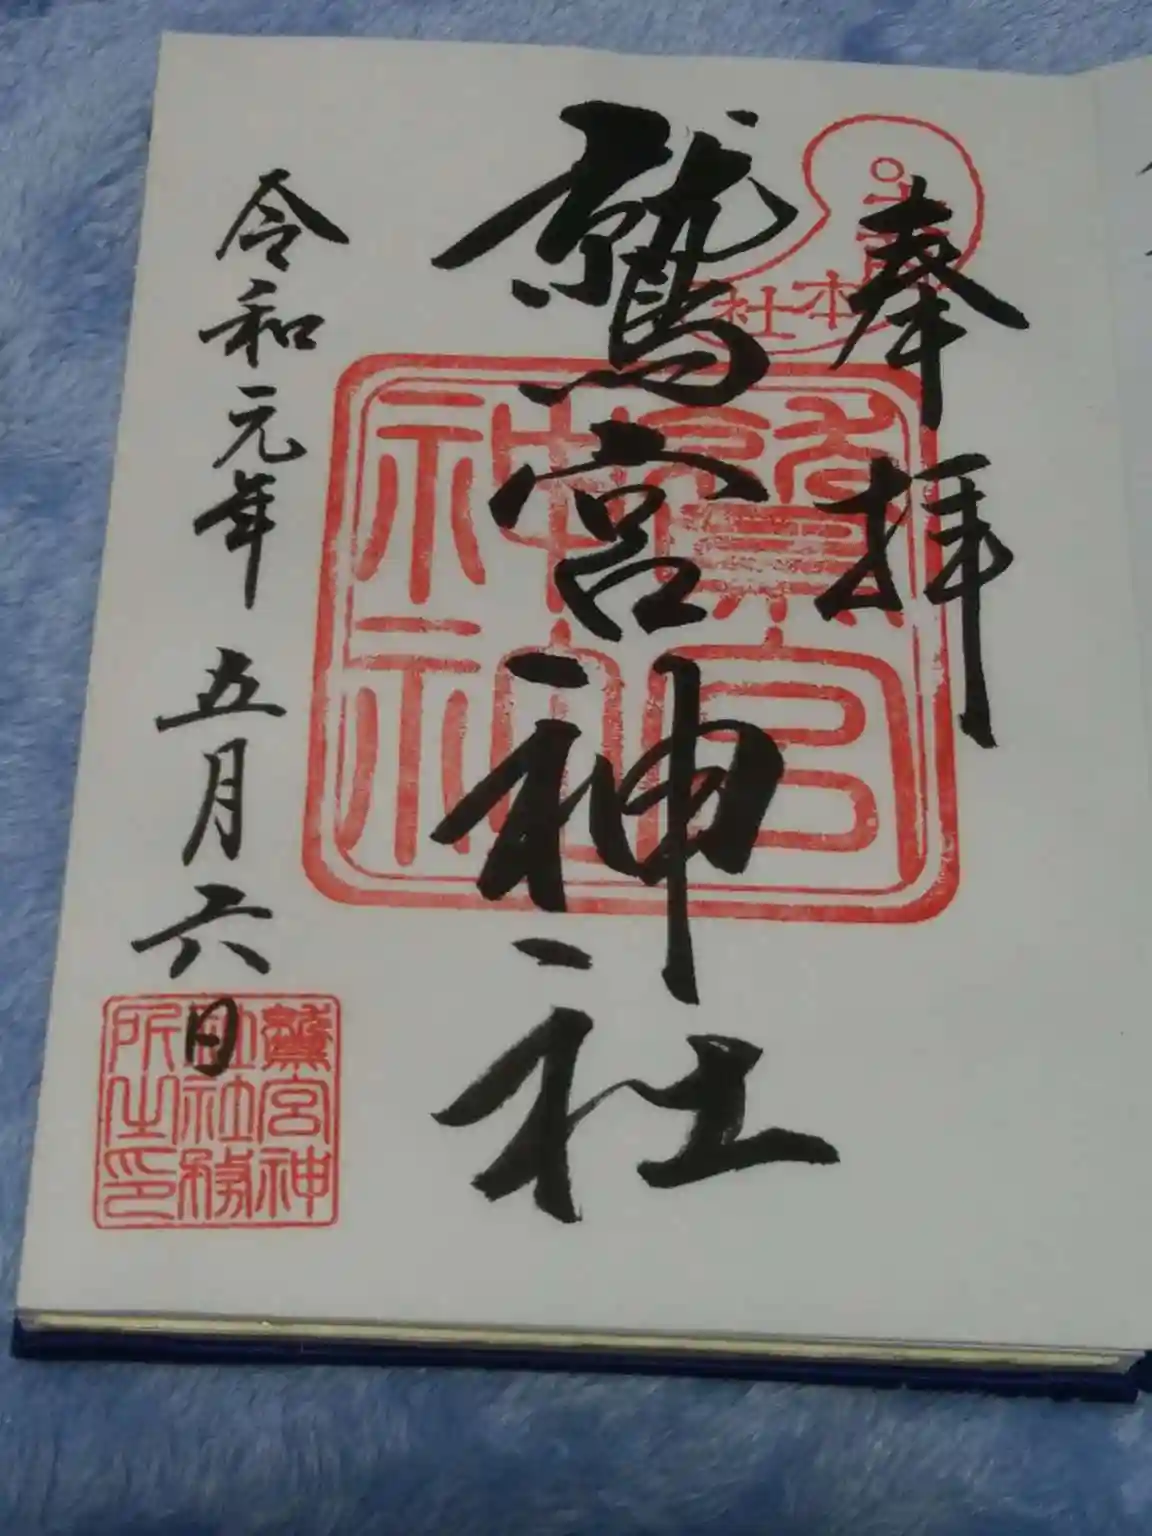 奉拝
本社
鷲宮神社
鷲宮神社
令和元年五月六日
鷲宮神
社務
所之印